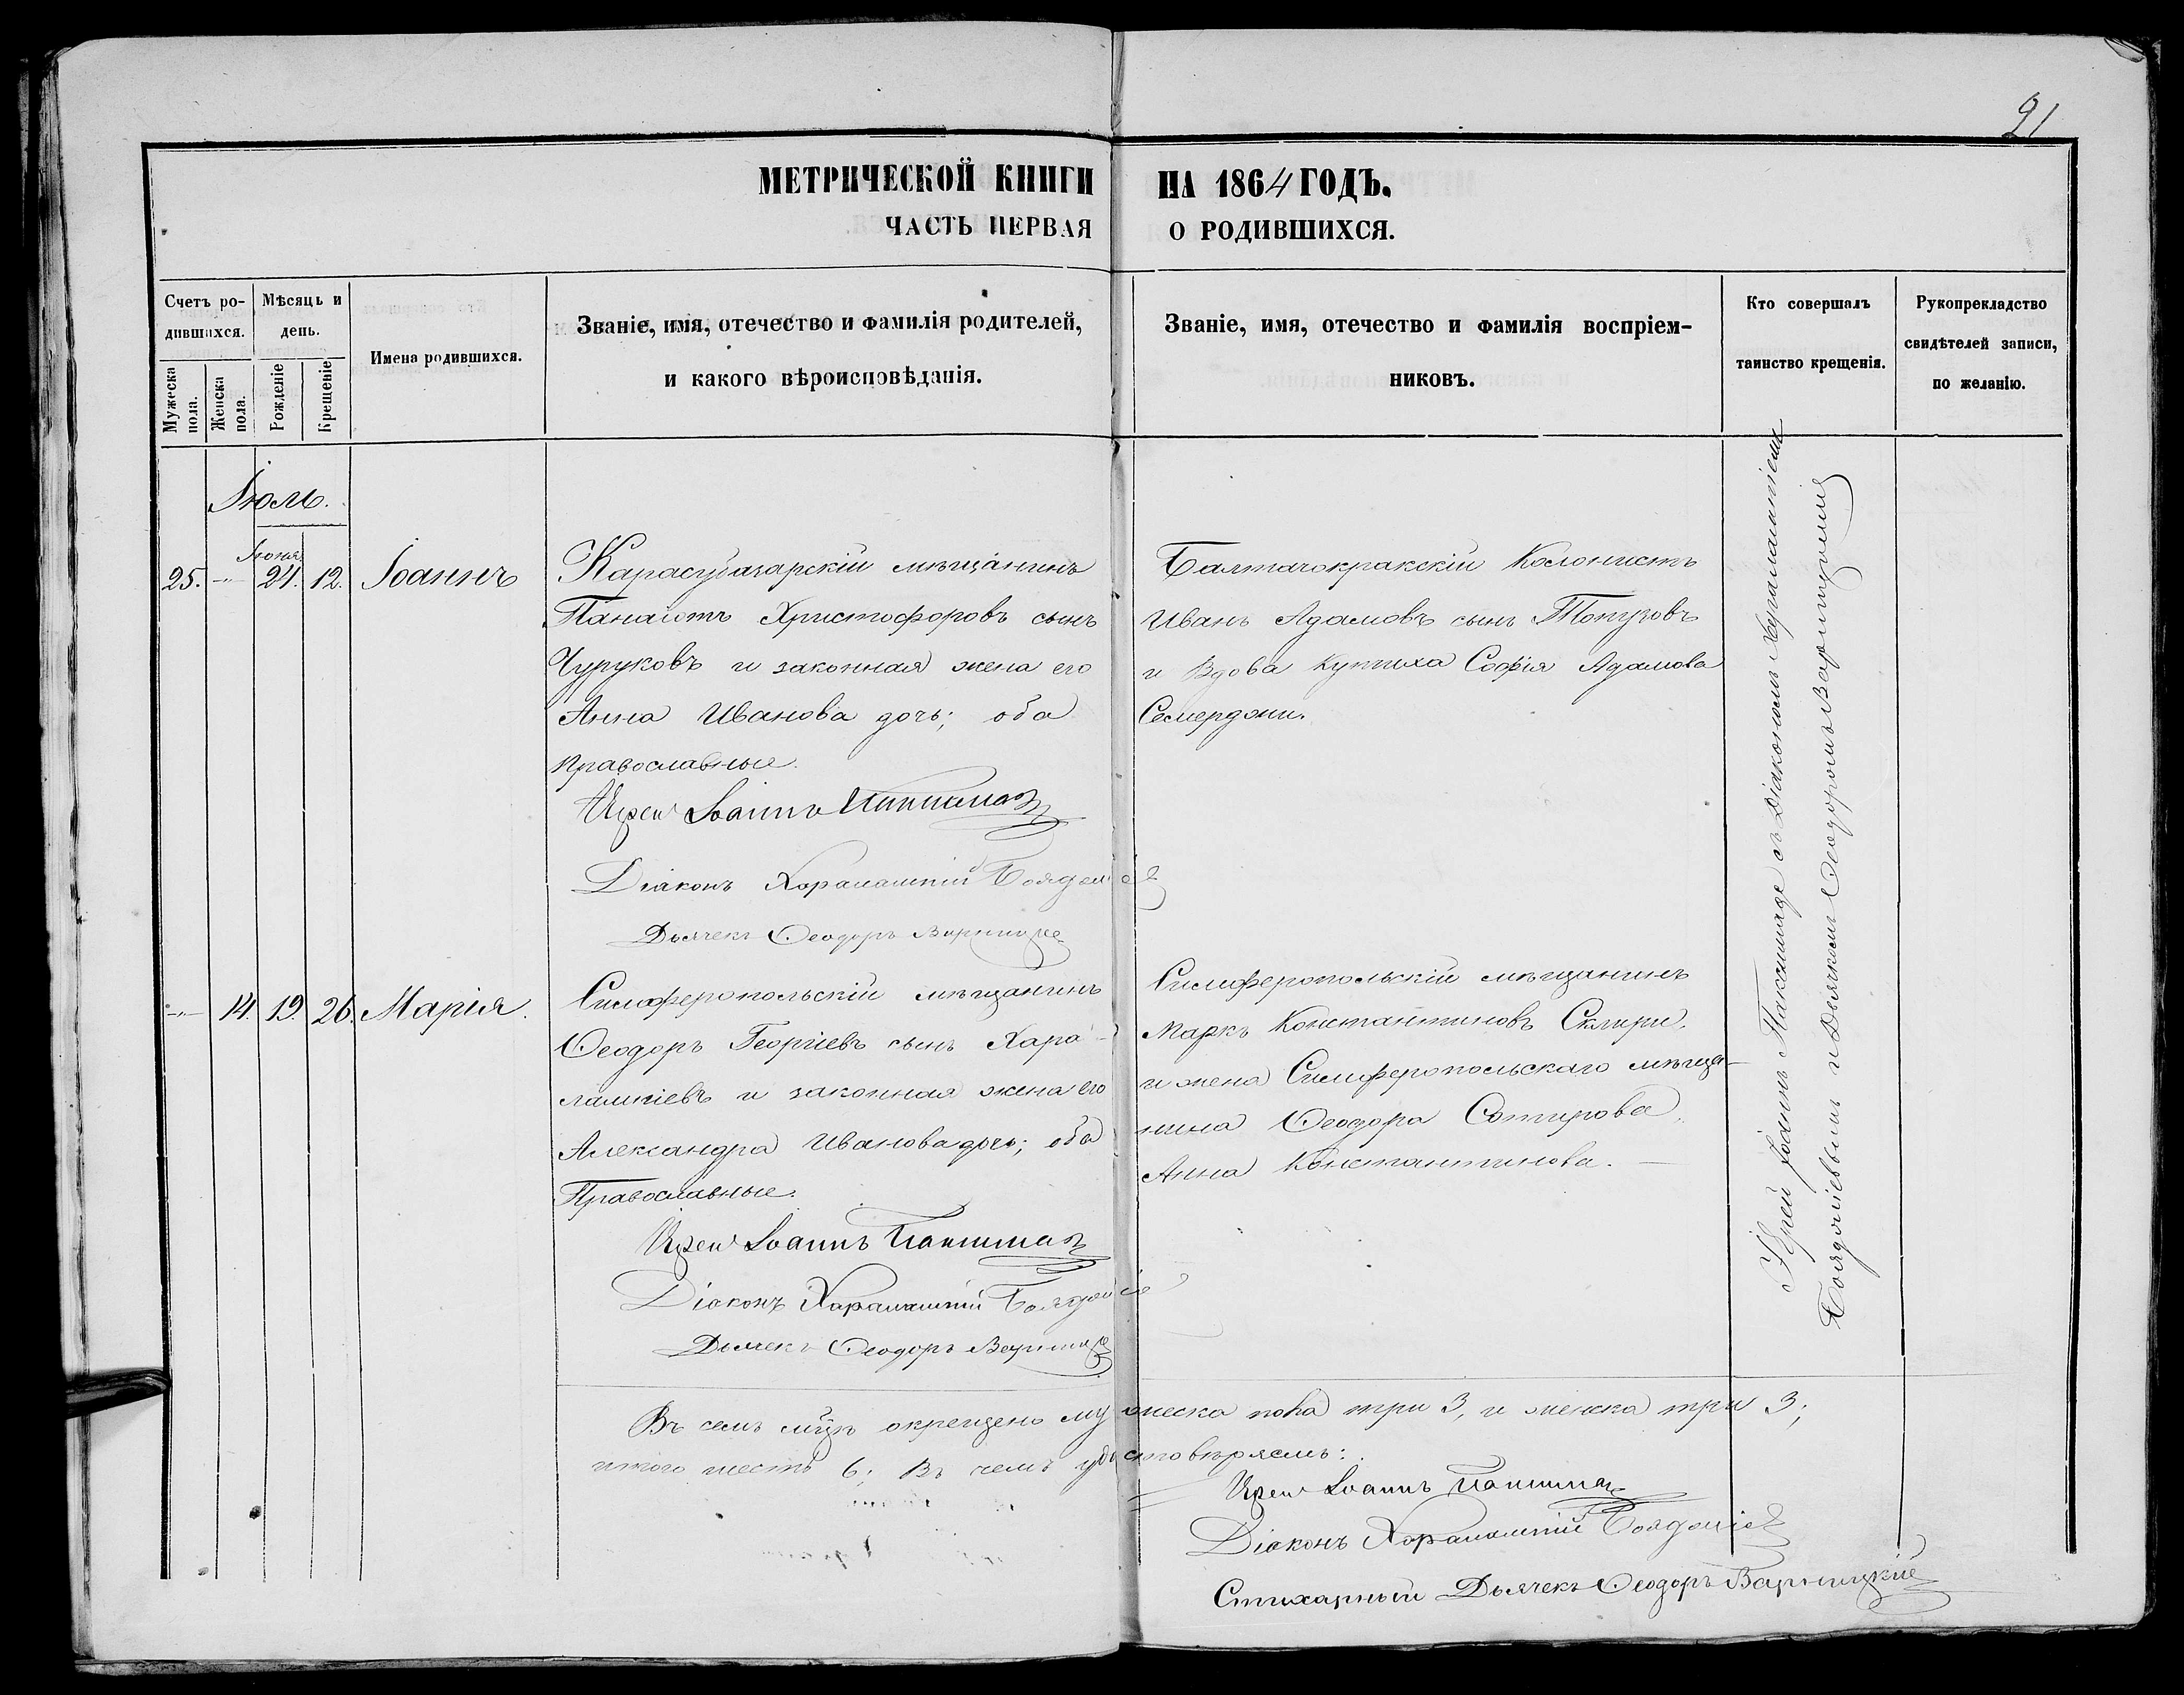 21
МЕТРИЧЕСКОЙ КНИГИ НА 1864 ГОДЪ.
ЧАСТЬ ПЕРВАЯ О РОДИВШИХСЯ.
Счетъ ро-
дившихся.
Мужеска пола.
Женска пола.
Мѣсяцъ и
день.
Рожденіе
Крещеніе
Имена родившихся.
Званіе, имя, отечество и фамилія родителей,
и какого вѣроисповѣданія.
Званіе, имя, отечество и фамилія воспріем-
никовъ.
Кто совершалъ
таинство крещенія.
Рукоприкладство
свидѣтелей записи,
по желанію.
Іюль.
Іюня
25. -"- 24. 12. Іоаннъ
Карасубазарскій мѣщанинъ
Панаіотъ Христофоровъ сынъ
Чуруковъ и законная жена его
Анна Иванова дочь; оба
православные.
Іерей Іоаннъ
Діаконъ Харалампій
Дьячекъ Ѳеодоръ
Балтачокракскій Колонистъ
Иванъ Адамовъ сынъ Топузовъ
и Вдова Купчиха Софія Адамова
Семерджи.
-"- 14. 19. 26. Марія.
Симферопольскій мѣщанинъ
Ѳеодоръ Георгіевъ сынъ Хара-
лампіевъ и законная жена его
Александра Иванова дочь; оба
Православные.
Іерей Іоаннъ
Діаконъ Харалампій
Дьячекъ Ѳеодоръ
Симферопольскій мѣщанинъ
Маркъ Константиновъ Склири,
и жена Симферопольскаго мѣща-
нина Ѳеодора Сотирова,
Анна Константинова. —
Іерей Іоаннъ съ Діакономъ Харалампіемъ
и Дьячкомъ Ѳеодоромъ
Въ семъ мцѣ окрещено мужеска пола три 3, и женска три 3;
итого шесть 6; Въ чемъ удостовѣряемъ:
Іерей Іоаннъ
Діаконъ Харалампій
Стихарный Дьячекъ Ѳеодоръ Варницкій